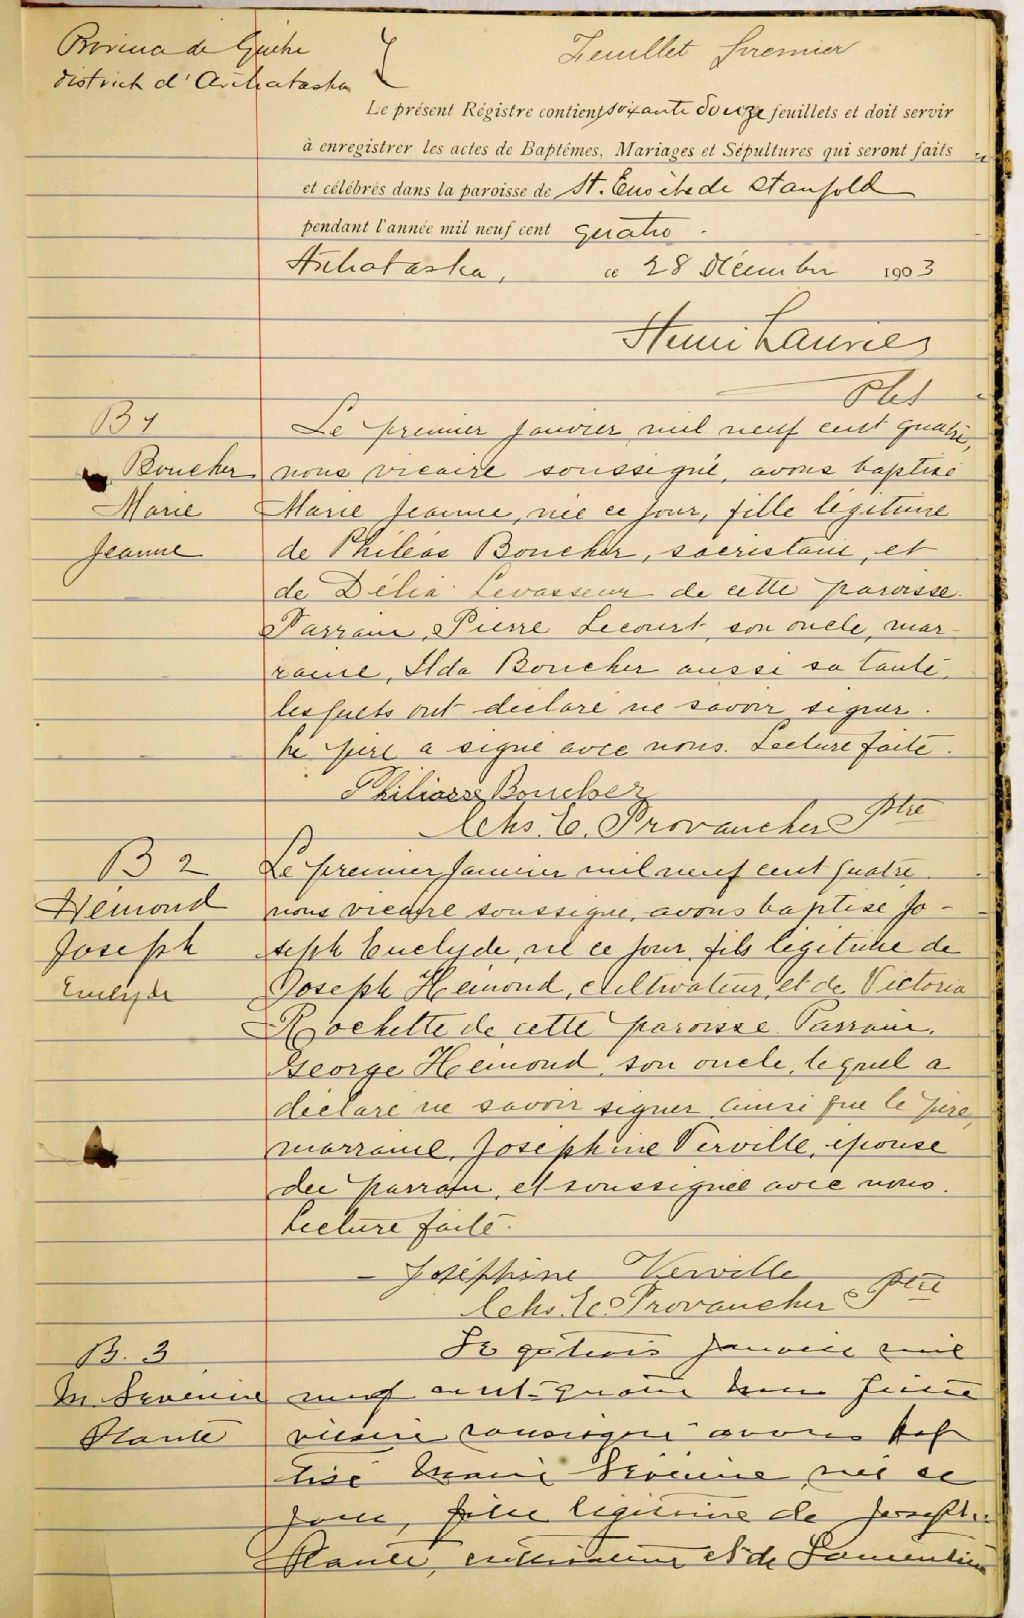 Province de Québec
Feuillet Premier
district d'Arthabaska
Le présent Régistre contient soixante douze feuillets et doit servir
à enregistrer les actes de Baptêmes, Mariages et Sépultures qui seront faits
et célébrés dans la paroisse de St. Eusèbe de Stanfold
pendant l'année mil neuf cent quatre.
Arthabaska, ce 28 Décembre 1903
Henri Laurier
B 1
Le premier janvier mil neuf cent quatre,
Boucher
nous vicaire soussigné, avons baptisé
Marie
Marie Jeanne, née ce jour, fille légitime
Jeanne
de Philéas Boucher, sacristain, et
de Délia Levasseur de cette paroisse.
Parrain, Pierre Lecourt, son oncle, mar-
raine, Alda Boucher aussi sa tante,
lesquels ont déclaré ne savoir signer.
Le père a signé avec nous. Lecture faite.
Philiasse Boucher
Chs. E. Provancher Ptre
B 2
Le premier Janvier mil neuf cent quatre
Hémond
nous vicaire soussigné, avons baptisé Jo-
Joseph
seph Euclyde, né ce jour, fils légitime de
Euclyde
Joseph Hémond, cultivateur, et de Victoria
Rochette de cette paroisse. Parrain,
George Hémond, son oncle, lequel a
déclaré ne savoir signer ainsi que le père,
marraine, Joséphine Verville, épouse
du parrain, et soussignée avec nous.
Lecture faite.
Joséphine Verville
Chs. E. Provancher Ptre
B. 3
Le trois Janvier mil
M. Sévérine
neuf cent-quatre nous Prêtre
Plante
vicaire soussigné avons bap
tisé Marie Sévérine née ce
jour, fille légitime de Joseph
Plante, cultivateur et de